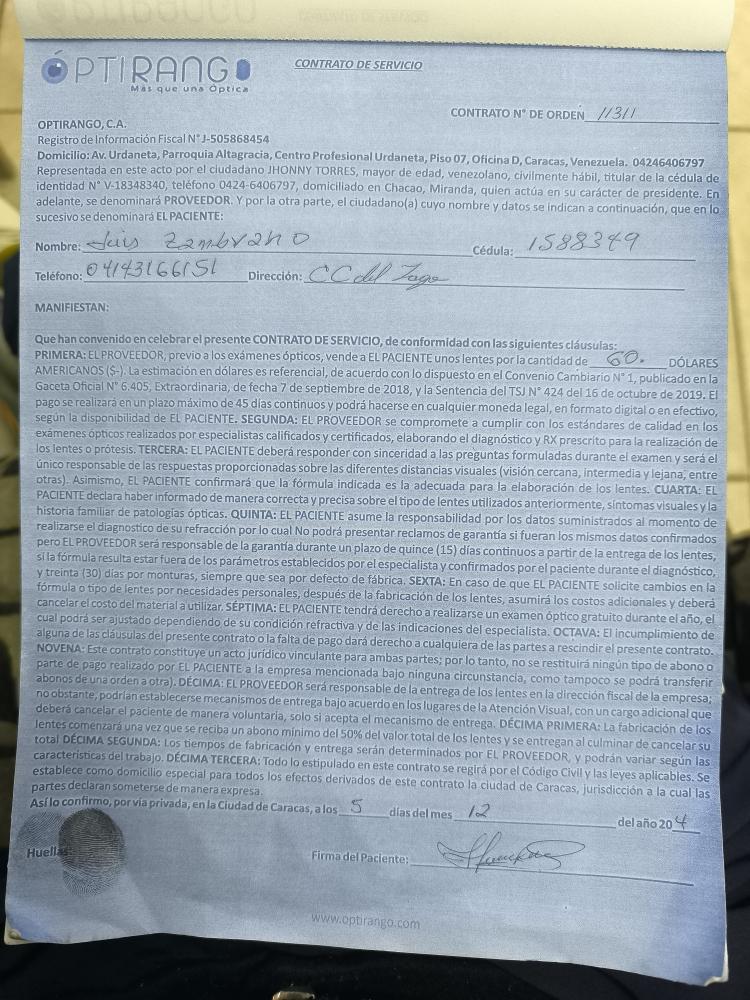 ÓPTIRANGO
Más que una Óptica
CONTRATO DE SERVICIO
CONTRATO N° DE ORDEN 11311
OPTIRANGO, C.A.
Registro de Información Fiscal N° J-505868454
Domicilio: Av. Urdaneta, Parroquia Altagracia, Centro Profesional Urdaneta, Piso 07, Oficina D, Caracas, Venezuela. 04246406797
Representada en este acto por el ciudadano JHONNY TORRES, mayor de edad, venezolano, civilmente hábil, titular de la cédula de
identidad N° V-18348340, teléfono 0424-6406797, domiciliado en Chacao, Miranda, quien actúa en su carácter de presidente. En
adelante, se denominará PROVEEDOR. Y por la otra parte, el ciudadano(a) cuyo nombre y datos se indican a continuación, que en lo
sucesivo se denominará EL PACIENTE:
Nombre: Luis Zambrano Cédula: 1588349
Teléfono: 04143166151 Dirección: CC del Lago
MANIFIESTAN:
Que han convenido en celebrar el presente CONTRATO DE SERVICIO, de conformidad con las siguientes cláusulas:
PRIMERA: EL PROVEEDOR, previo a los exámenes ópticos, vende a EL PACIENTE unos lentes por la cantidad de 60. DÓLARES
AMERICANOS ($-). La estimación en dólares es referencial, de acuerdo con lo dispuesto en el Convenio Cambiario N° 1, publicado en la
Gaceta Oficial N° 6.405, Extraordinaria, de fecha 7 de septiembre de 2018, y la Sentencia del TSJ N° 424 del 16 de octubre de 2019. El
pago se realizará en un plazo máximo de 45 días continuos y podrá hacerse en cualquier moneda legal, en formato digital o en efectivo,
según la disponibilidad de EL PACIENTE. SEGUNDA: EL PROVEEDOR se compromete a cumplir con los estándares de calidad en los
exámenes ópticos realizados por especialistas calificados y certificados, elaborando el diagnóstico y RX prescrito para la realización de
los lentes o prótesis. TERCERA: EL PACIENTE deberá responder con sinceridad a las preguntas formuladas durante el examen y será el
único responsable de las respuestas proporcionadas sobre las diferentes distancias visuales (visión cercana, intermedia y lejana, entre
otras). Asimismo, EL PACIENTE confirmará que la fórmula indicada es la adecuada para la elaboración de los lentes. CUARTA: EL
PACIENTE declara haber informado de manera correcta y precisa sobre el tipo de lentes utilizados anteriormente, síntomas visuales y la
historia familiar de patologías ópticas. QUINTA: EL PACIENTE asume la responsabilidad por los datos suministrados al momento de
realizarse el diagnostico de su refracción por lo cual No podrá presentar reclamos de garantía si fueran los mismos datos confirmados
pero EL PROVEEDOR será responsable de la garantía durante un plazo de quince (15) días continuos a partir de la entrega de los lentes,
si la fórmula resulta estar fuera de los parámetros establecidos por el especialista y confirmados por el paciente durante el diagnóstico,
y treinta (30) días por monturas, siempre que sea por defecto de fábrica. SEXTA: En caso de que EL PACIENTE solicite cambios en la
fórmula o tipo de lentes por necesidades personales, después de la fabricación de los lentes, asumirá los costos adicionales y deberá
cancelar el costo del material a utilizar. SÉPTIMA: EL PACIENTE tendrá derecho a realizarse un examen óptico gratuito durante el año, el
cual podrá ser ajustado dependiendo de su condición refractiva y de las indicaciones del especialista. OCTAVA: El incumplimiento de
alguna de las cláusulas del presente contrato o la falta de pago dará derecho a cualquiera de las partes a rescindir el presente contrato.
NOVENA: Este contrato constituye un acto jurídico vinculante para ambas partes; por lo tanto, no se restituirá ningún tipo de abono o
parte de pago realizado por EL PACIENTE a la empresa mencionada bajo ninguna circunstancia, como tampoco se podrá transferir
abonos de una orden a otra). DÉCIMA: EL PROVEEDOR será responsable de la entrega de los lentes en la dirección fiscal de la empresa;
no obstante, podrían establecerse mecanismos de entrega bajo acuerdo en los lugares de la Atención Visual, con un cargo adicional que
deberá cancelar el paciente de manera voluntaria, solo si acepta el mecanismo de entrega. DÉCIMA PRIMERA: La fabricación de los
lentes comenzará una vez que se reciba un abono mínimo del 50% del valor total de los lentes y se entregan al culminar de cancelar su
total DÉCIMA SEGUNDA: Los tiempos de fabricación y entrega serán determinados por EL PROVEEDOR, y podrán variar según las
características del trabajo. DÉCIMA TERCERA: Todo lo estipulado en este contrato se regirá por el Código Civil y las leyes aplicables. Se
establece como domicilio especial para todos los efectos derivados de este contrato la ciudad de Caracas, jurisdicción a la cual las
partes declaran someterse de manera expresa.
Así lo confirmo, por vía privada, en la Ciudad de Caracas, a los 5 días del mes 12 del año 204
Huellas
Firma del Paciente:
www.optirango.com